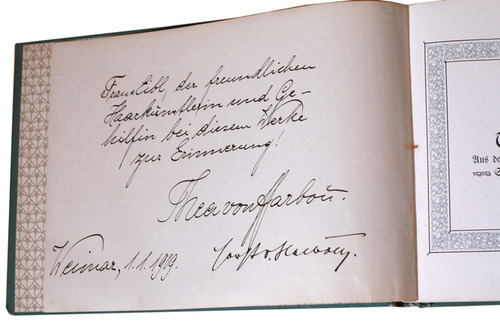 Frau Eibl, der freundlichen
Haarkünstlerin und Ge-
hilfin bei diesem Werke
zur Erinnerung!
Thea von Harbou.
Weimar, 1.1.1909.
Aus de
1919 S